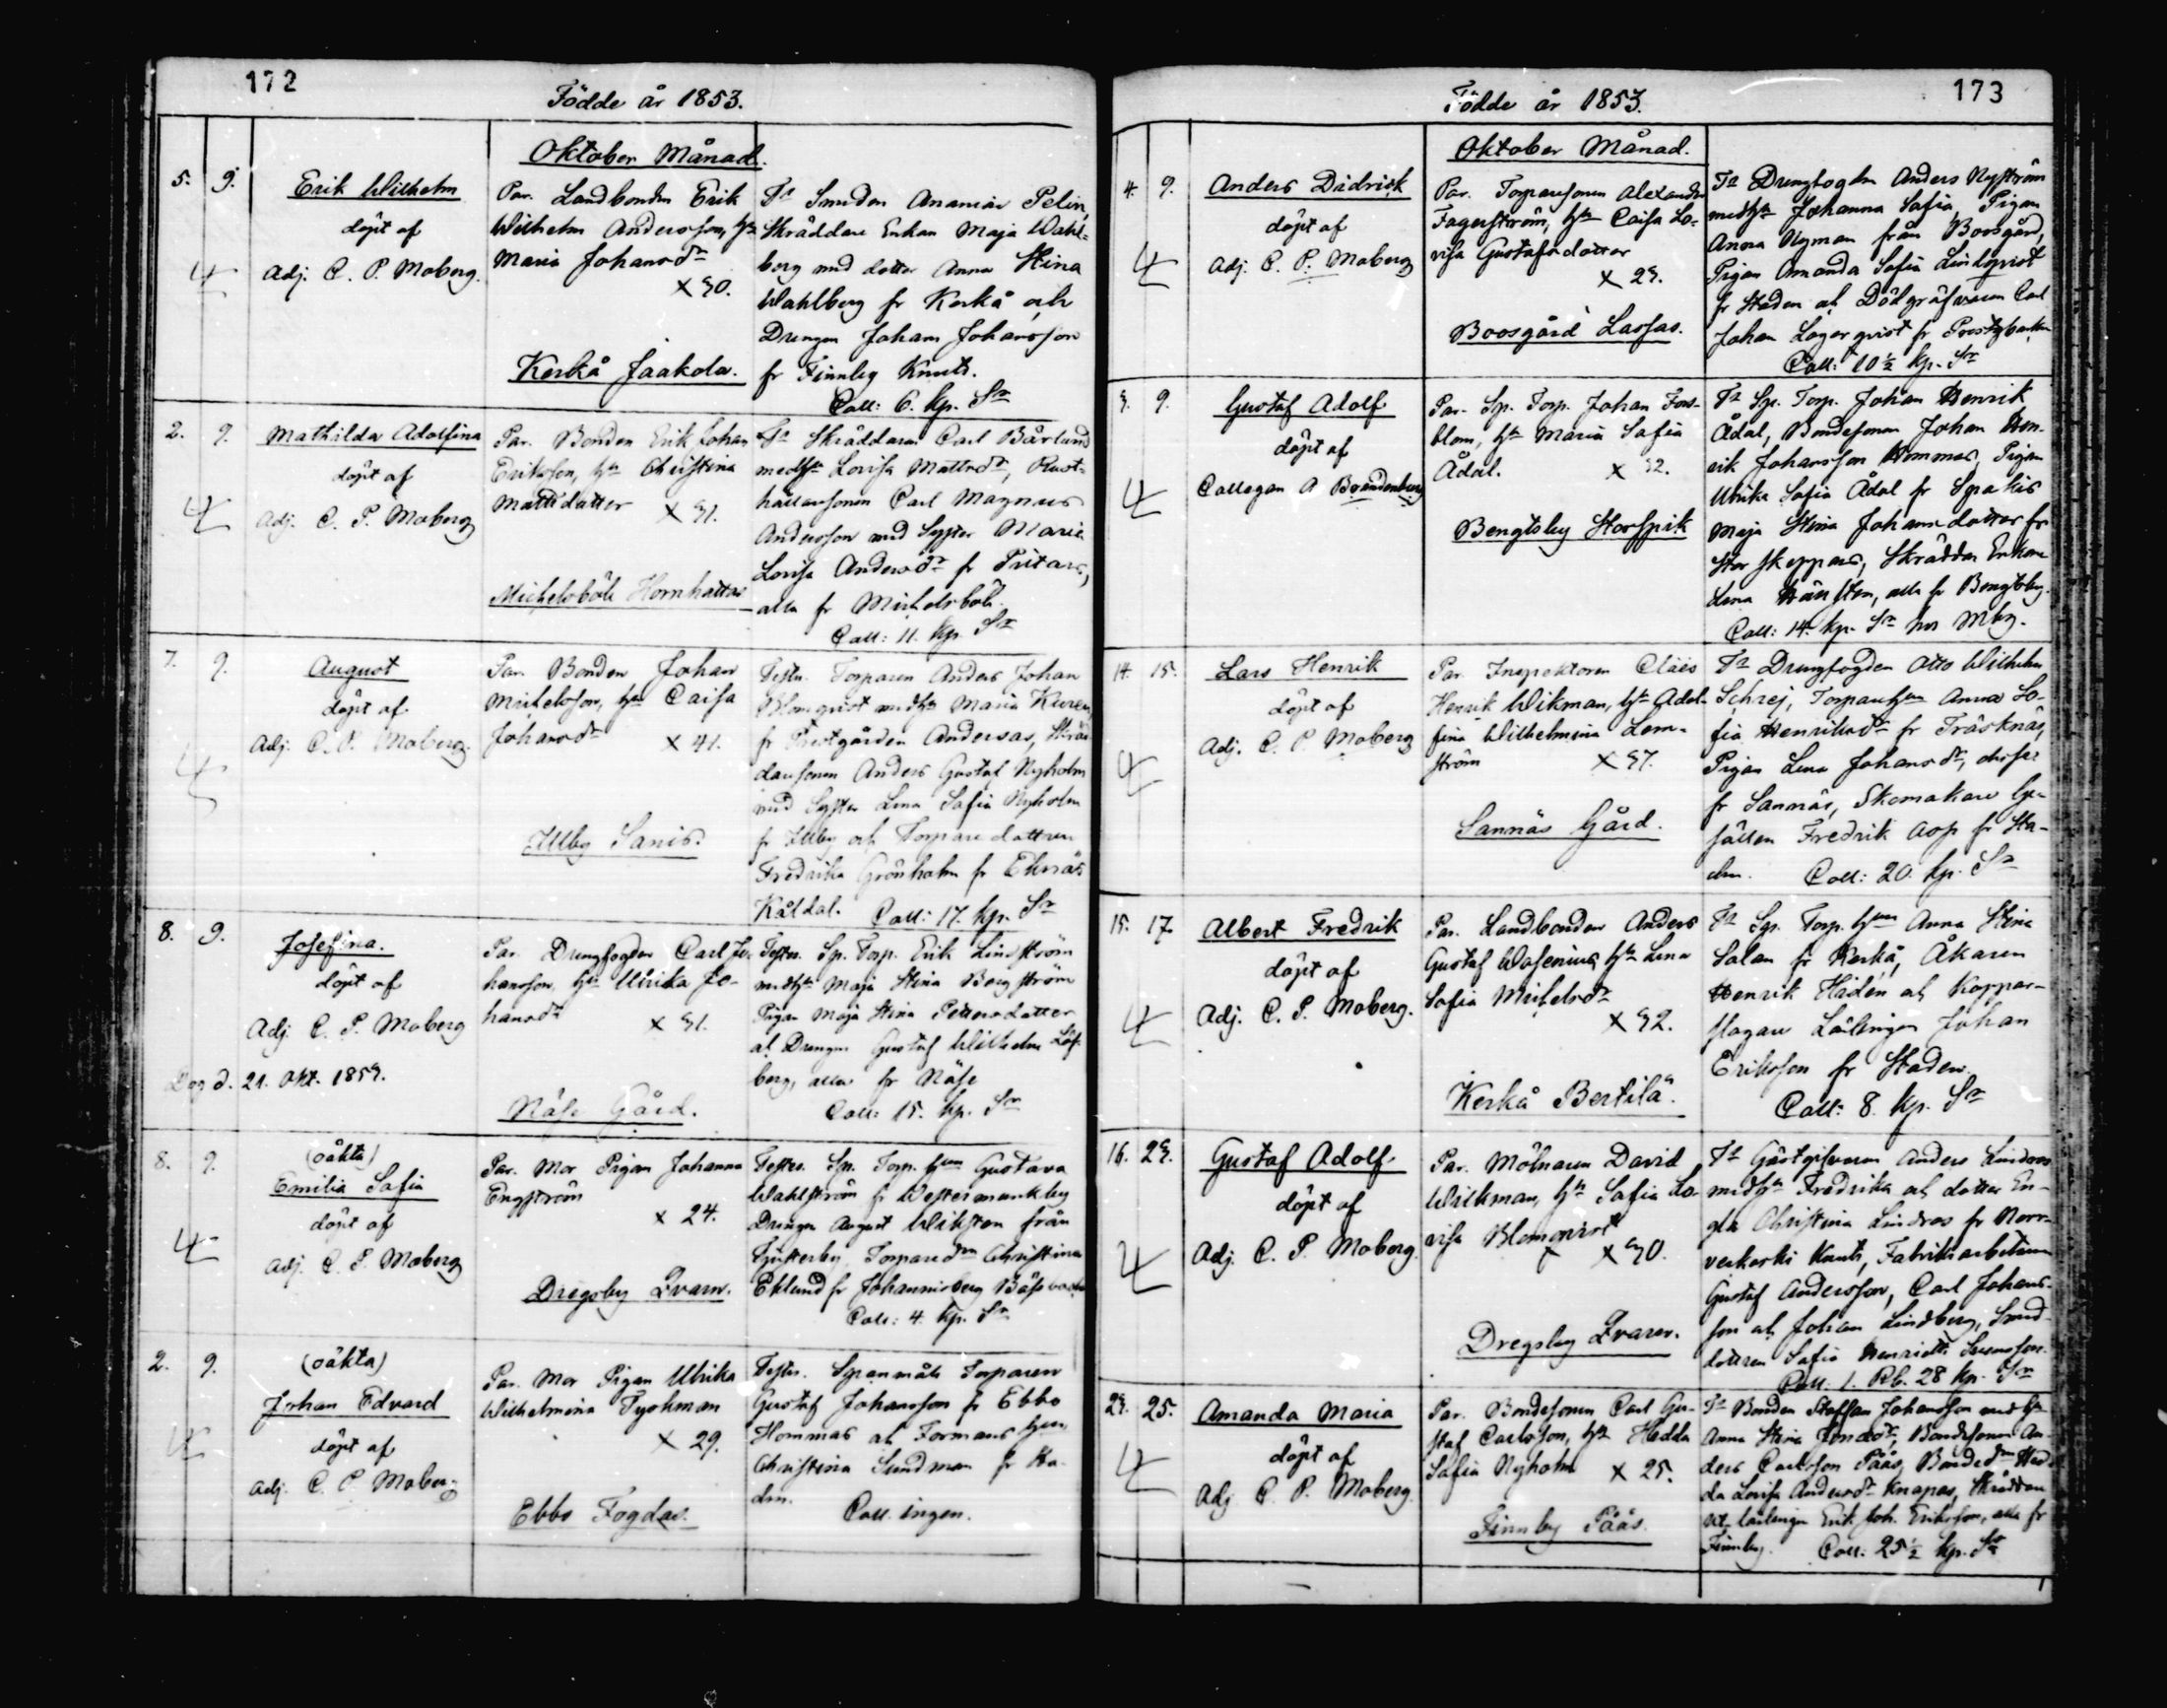 172
Födde år 1853.
Oktober Månad.
5. 9. Erik Wilhelm
döpt af
Adj. C. P. Moberg.
Par. Landbonden Erik
Wilhelm Andersson, h:u
Maria Johansd:r
x 30.
Kerkå Jaakola.
Tt Smeden Ananias Pelin,
Skräddare Enkan Maja Wahl-
berg med dotter Anna Stina
Wahlberg fr Kerkå och
Drengen Johan Johansson
fr Finnby Knuts.
Coll: 6. kp. Sr
2. 9. Mathilda Adolfina
döpt af
Adj. C. P. Moberg
Par. Bonden Erik Johan
Eriksson, h:u Christina
Mattsdotter x 31.
Michelsböle Hornhattas
Tt Skräddaren Carl Bärlund
med h:u Lovisa Mattsd:r, Rust-
hållaresonen Carl Magnus
Andersson med Syster Maria
Lovisa Andersd:r fr Pritars,
alla fr Michelsböle.
Coll: 11. kp. Sr
7. 9. August
döpt af
Adj. C. P. Moberg.
Par. Bonden Johan
Michelsson, h:u Caisa
Johansd:r x 41.
Illby Sanis.
Testes. Torparen Anders Johan
Blomqvist med h:u Maria
fr Prestgården Andersas, Skräd-
daresonen Anders Gustaf Nyholm
med Syster Lena Sofia Nyholm
fr Illby och Torpare dottren
Fredrika Grönholm fr Eknäs
Kåldal. Coll: 17. kp. Sr
8. 9. Josefina.
döpt af
Adj. C. P. Moberg
Dog d. 21. Okt. 1853.
Par. Drengfogden Carl Jo-
hansson, h:u Ulrika Jo-
hansd:r x 31.
Näse Gård.
Testes. Sp. Torp. Erik Lindström
med h:u Maja Stina Bergström
Pigan Maja Stina Pettersdotter
och Drengen Gustaf Wilhelm Löf-
berg, alla fr Näse
Coll: 15. kp. Sr
8. 9. (oäkta)
Emilia Sofia
döpt af
Adj. C. P. Moberg
Par. Mor Pigan Johanna
Engström
x 24.
Dregsby Qvarn.
Testes. Sp. Torp. h:un Gustava
Wahlström fr Westermunkby
Drengen August Wiksten från
Tjusterby, Torpared:rn Christina
Eklund fr Johannisberg
Coll: 4. kp. Sr
2. 9. (oäkta)
Johan Edvard
döpt af
Adj. C. P. Moberg
Par. Mor Pigan Ulrika
Wilhelmina Tyohman
x 29.
Ebbo Fogdas.
Testes. Spanmåls Torparen
Gustaf Johansson fr Ebbo
Hommas och Formans h:un
Christina Sundman fr Sta-
den. Coll. ingen.
173
Födde år 1853.
Oktober Månad.
4. 9. Anders Didrick
döpt af
Adj. C. P. Moberg
Par. Torparesonen Alexander
Fagerström, h:u Caisa Lo-
visa Gustafsdotter
x 23.
Boosgård Lassas.
Tt Drengfogden Anders Nyström
med h:u Johanna Sofia, Pigan
Anna Nyman från Boosgård,
Pigan Amanda Sofia Lindqvist
fr Staden och Dödgräfvaren Carl
Johan Lagerqvist fr
Coll: 10 1/2 kp. Sr
3. 9. Gustaf Adolf
döpt af
Collegan A Brandenburg
Par. Sp. Torp. Johan Fors-
blom, h:u Maria Sofia
Ådal. x 32.
Bengtsby Storspik
Tt Sp. Torp. Johan Henrik
Ådal, Bondesonen Johan Hen-
rik Johansson Hommas, Pigan
Ulrika Sofia Ådal fr Spakis
Maja Stina Johansdotter fr
Stor Skeppars, Skräddar Enkan
Lena, alla fr Bengtsby.
Coll: 14. kp. Sr hos Mbg.
14. 15. Lars Henrik
döpt af
Adj. C. P. Moberg
Par. Inspektoren Claës
Henrik Wikman, h:u Adol-
fina Wilhelmina Lem-
ström x 37.
Sannäs Gård.
Tt Drengfogden Otto Wilhelm
Schrej, Torpareh:un Anna So-
fia Henriksd:r fr Träsknäs,
Pigan Lena Johansd:r, dessa
fr Sannäs, Skomakare Ge-
sällen Fredrik Aop fr Sta-
den. Coll: 20. kp. Sr
15. 17. Albert Fredrik
döpt af
Adj. C. P. Moberg.
Par. Landbonden Anders
Gustaf Wasenius, h:u Lena
Sofia Michelsd:r
x 32.
Kerkå Bertilä.
Tt Sp. Torp. h:un Anna Stina
Salen fr Kerkå, Åkaren
Henrik Hidén och Koppar-
slagare Lärlingen Johan
Eriksson fr Staden.
Coll: 8. kp. Sr
16. 23. Gustaf Adolf.
döpt af
Adj. C. P. Moberg.
Par. Mölnaren David
Wilkman, h:u Sofia Lo-
visa Blomqvist
x 30.
Dregsby Qvarn.
Tt Gästgifvaren Anders Lindros
med h:u Fredrika och dotter En-
gla Christina Lindros fr Norr-
veckoski Knuts, Fabriksarbetaren
Gustaf Andersson, Carl Johans-
son och Johan Lindberg, Smed-
dottren Sofia Henrietta Svensson.
Coll: 1. Rb. 28 kp. Sr
23. 25. Amanda Maria
döpt af
Adj C. P. Moberg.
Par. Bondesonen Carl Gu-
staf Carlsson, h:u Hedda
Sofia Nyholm x 25.
Finnby Påås.
Tt Bonden Staffan Johansson med h:u
Anna Stina Jonasd:r, Bondesonen An-
ders Carlsson Påås, Bonded:rn Hed-
da Lovisa Andersd:r Knapas, Skräddare
lärlingen Erik Joh. Eriksson, alla fr
Finnby. Coll: 25 1/2 kp. Sr